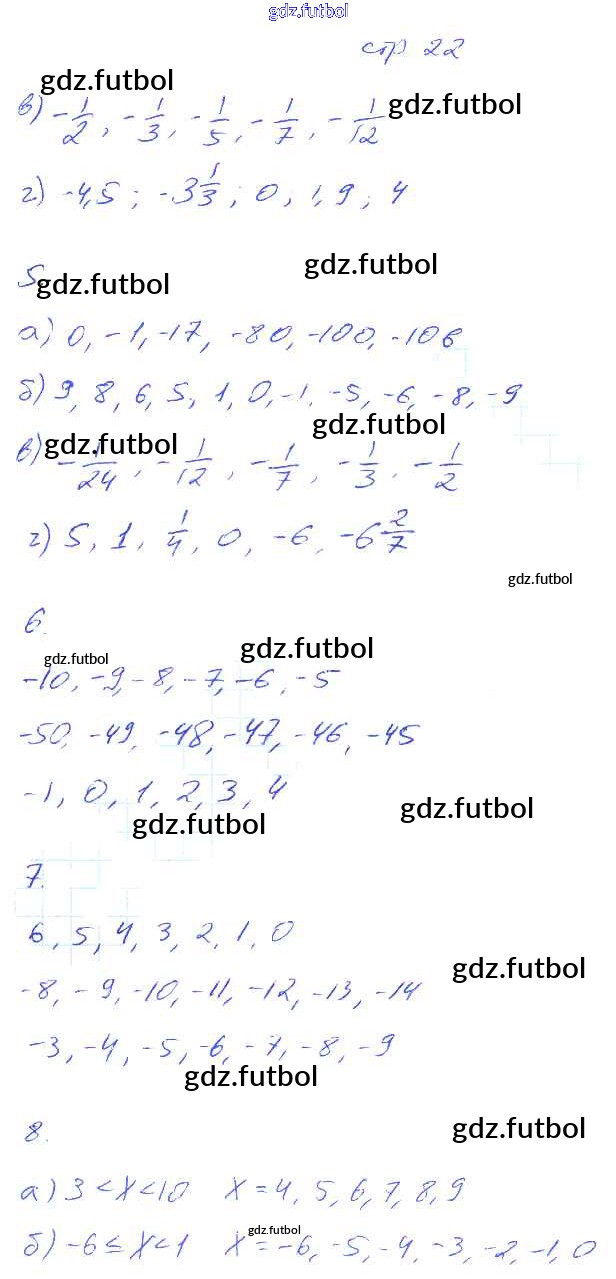 gdz.futbol
стр 22
gdz.futbol
в) -1/2, -1/3, -1/5, -1/7, -1/12
gdz.futbol
г) -4,5; -3 1/3; 0; 1,9; 4
gdz.futbol
5
gdz.futbol
а) 0, -1, -17, -80, -100, -106
б) 9, 8, 6, 5, 1, 0, -1, -5, -6, -8, -9
gdz.futbol
gdz.futbol
в) -1/24, -1/12, -1/7, -1/3, -1/2
г) 5, 1, 1/4, 0, -6, -6 2/7
gdz.futbol
6.
gdz.futbol
gdz.futbol
-10, -9, -8, -7, -6, -5
-50, -49, -48, -47, -46, -45
-1, 0, 1, 2, 3, 4
gdz.futbol
gdz.futbol
7.
6, 5, 4, 3, 2, 1, 0
gdz.futbol
-8, -9, -10, -11, -12, -13, -14
-3, -4, -5, -6, -7, -8, -9
gdz.futbol
8.
gdz.futbol
а) 3 < x < 10 x = 4, 5, 6, 7, 8, 9
gdz.futbol
б) -6 ≤ x < 1 x = -6, -5, -4, -3, -2, -1, 0